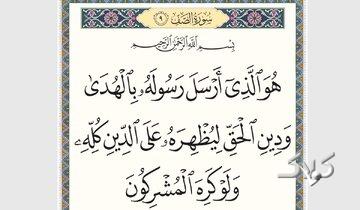 سُورَةُ الصَّفِّ ٩
بِسْمِ اللَّهِ الرَّحْمَٰنِ الرَّحِيمِ
هُوَ ٱلَّذِىٓ أَرْسَلَ رَسُولَهُۥ بِٱلْهُدَىٰ
وَدِينِ ٱلْحَقِّ لِيُظْهِرَهُۥ عَلَى ٱلدِّينِ كُلِّهِۦ
وَلَوْ كَرِهَ ٱلْمُشْرِكُونَ
كولاك